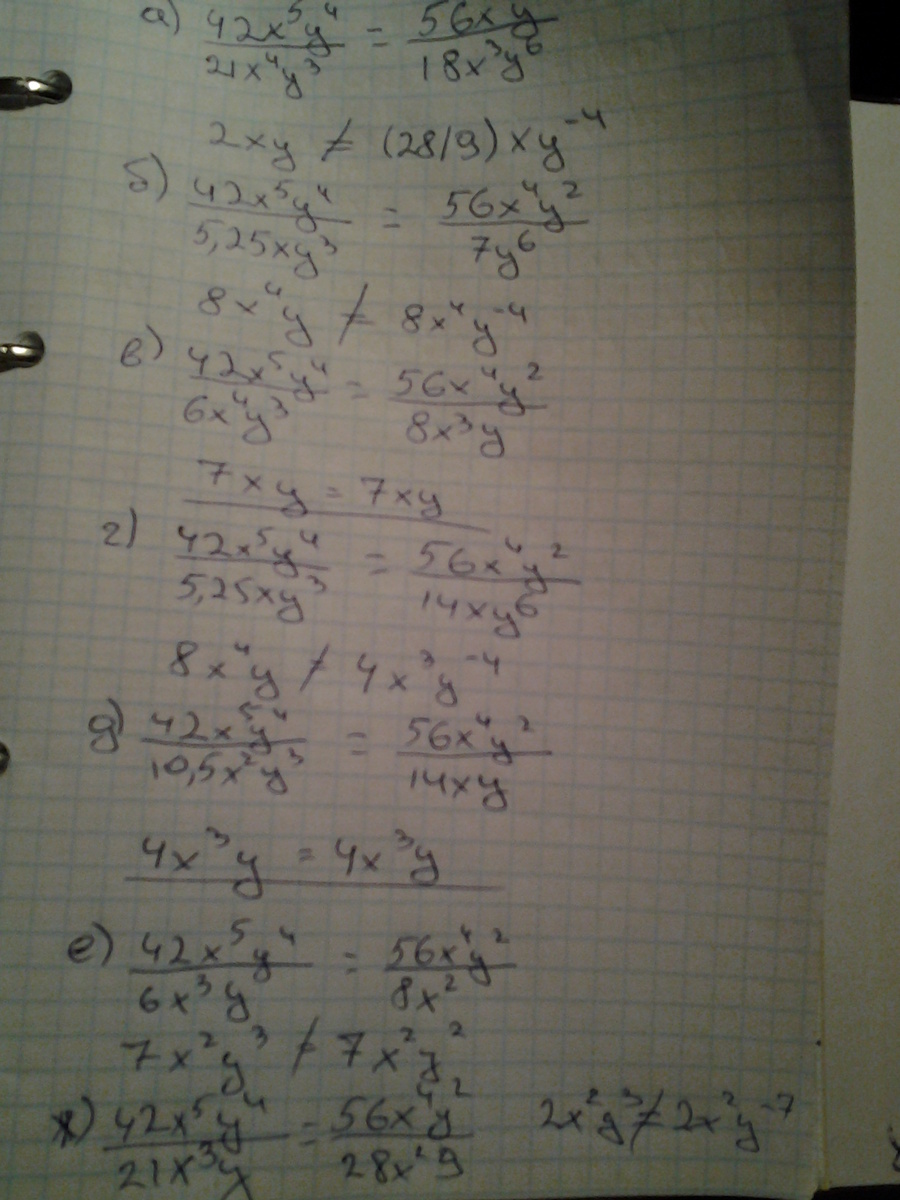 а) 42x⁵y⁴/21x⁴y³ = 56xy/18x³y⁶
2xy ≠ (28/9)xy⁻⁴
б) 42x⁵y⁴/5,25xy³ = 56x⁴y²/7y⁶
8x⁴y ≠ 8x⁴y⁻⁴
в) 42x⁵y⁴/6x⁴y³ = 56x⁴y²/8x³y
7xy = 7xy
г) 42x⁵y⁴/5,25xy³ = 56x⁴y²/14xy⁶
8x⁴y ≠ 4x³y⁻⁴
д) 42x⁵y⁴/10,5x²y³ = 56x⁴y²/14xy
4x³y = 4x³y
е) 42x⁵y⁴/6x³y = 56x⁴y²/8x²
7x²y³ ≠ 7x²y²
ж) 42x⁵y⁴/21x³y = 56x⁴y²/28x²9 2x²y³ ≠ 2x²y⁻⁷